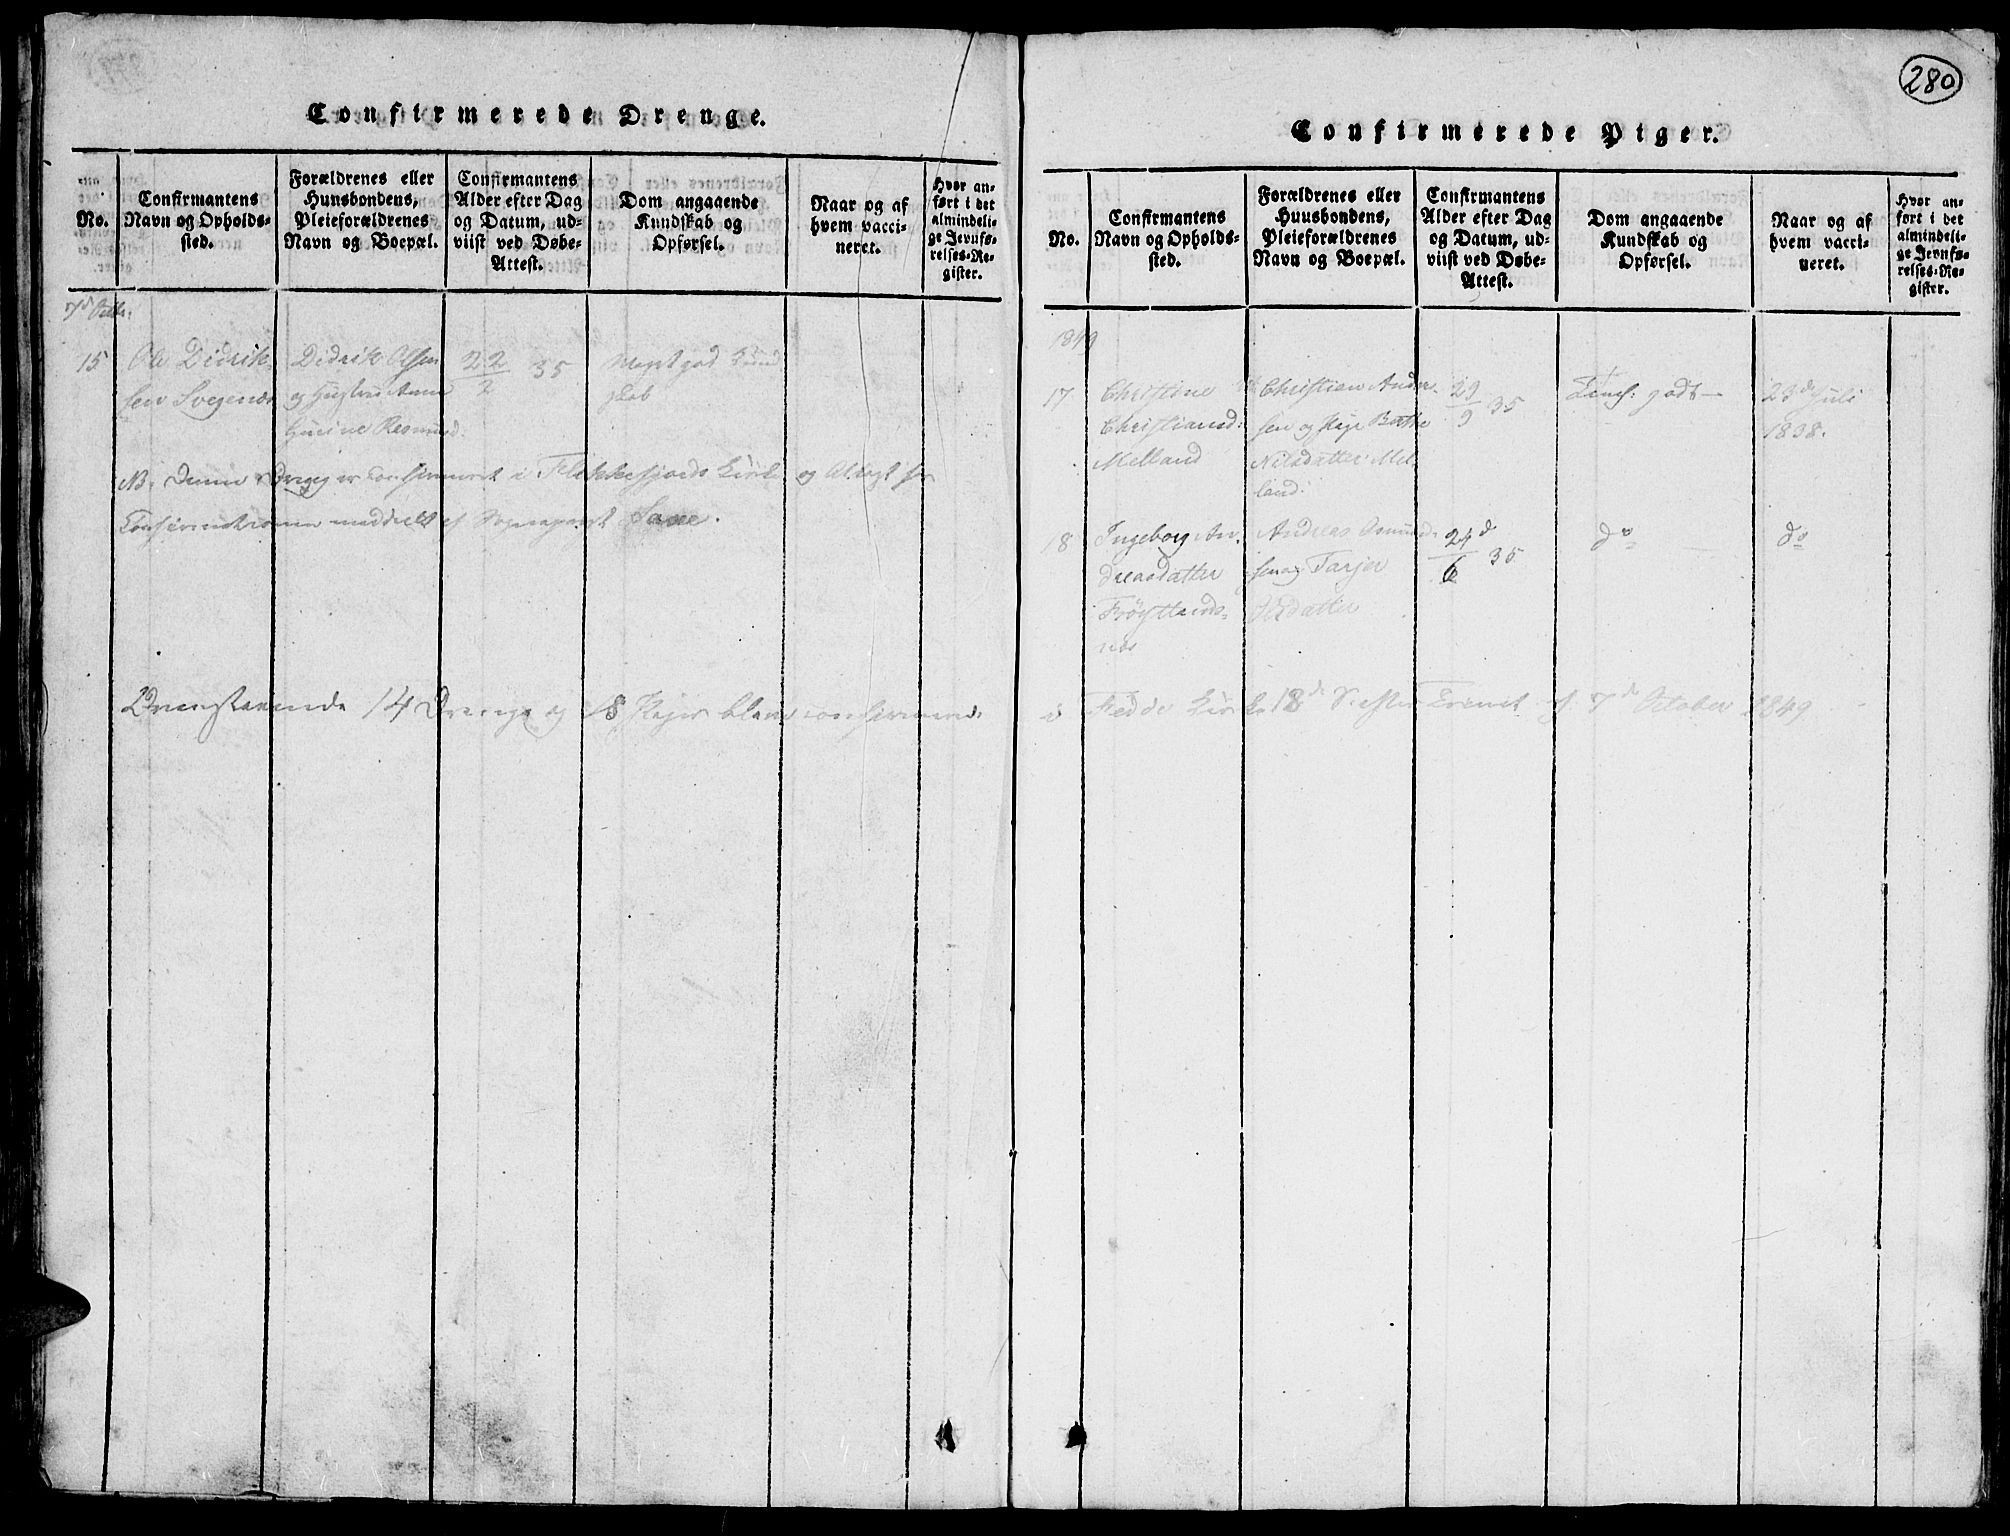 280
Confirmerede Drenge.
No.
Confirmantens
Navn og Opholds-
sted.
Forældrenes eller
Huusbondens,
Pleieforældrenes
Navn og Boepæl.
Confirmantens
Alder efter Dag
og Datum, ud-
viist ved Døbe-
Attest.
Dom angaaende
Kundskab og
Opførsel.
Naar og af
hvem vacci-
neret.
Hvor an-
ført i det
almindeli-
ge Jevnfø-
relses-Re-
gister.
7d Octbr.
15
Ole Didrik-
sen Svegenæs
Didrik Olsen
og Hustru Anne
Resmund.
22/2 35
Meget god Kund
skab
NB. Denne Dreng er confirmeret i Flekkefjords Kirke og Attest for
Confirmationen meddeelt af Sogneprest
Ovenstaaende 14 Drenge og 18 Piger bleve confirmerede
Confirmerede Piger.
No.
Confirmantens
Navn og Opholds-
sted.
Forældrenes eller
Huusbondens,
Pleieforældrenes
Navn og Boepæl.
Confirmantens
Alder efter Dag
og Datum, ud-
viist ved Døbe-
Attest.
Dom angaaende
Kundskab og
Opførsel.
Naar og af
hvem vacci-
neret.
Hvor an-
ført i det
almindeli-
ge Jevnfø-
relses-Re-
gister.
1849
17
Christine
Christiansd:
Melland
Christian Ander-
sen og
Nilsdatter Mel-
land.
29/9 35
godt
23de Juli
1838.
18
Ingeborg An-
dreasdatter
Frøytlands-
næs
Andreas Osmund-
sen og Tarjer
Olsdatter
24d/6 35
do
do
i Fedde Kirke 18de S. efter Trinit. d. 7de October 1849